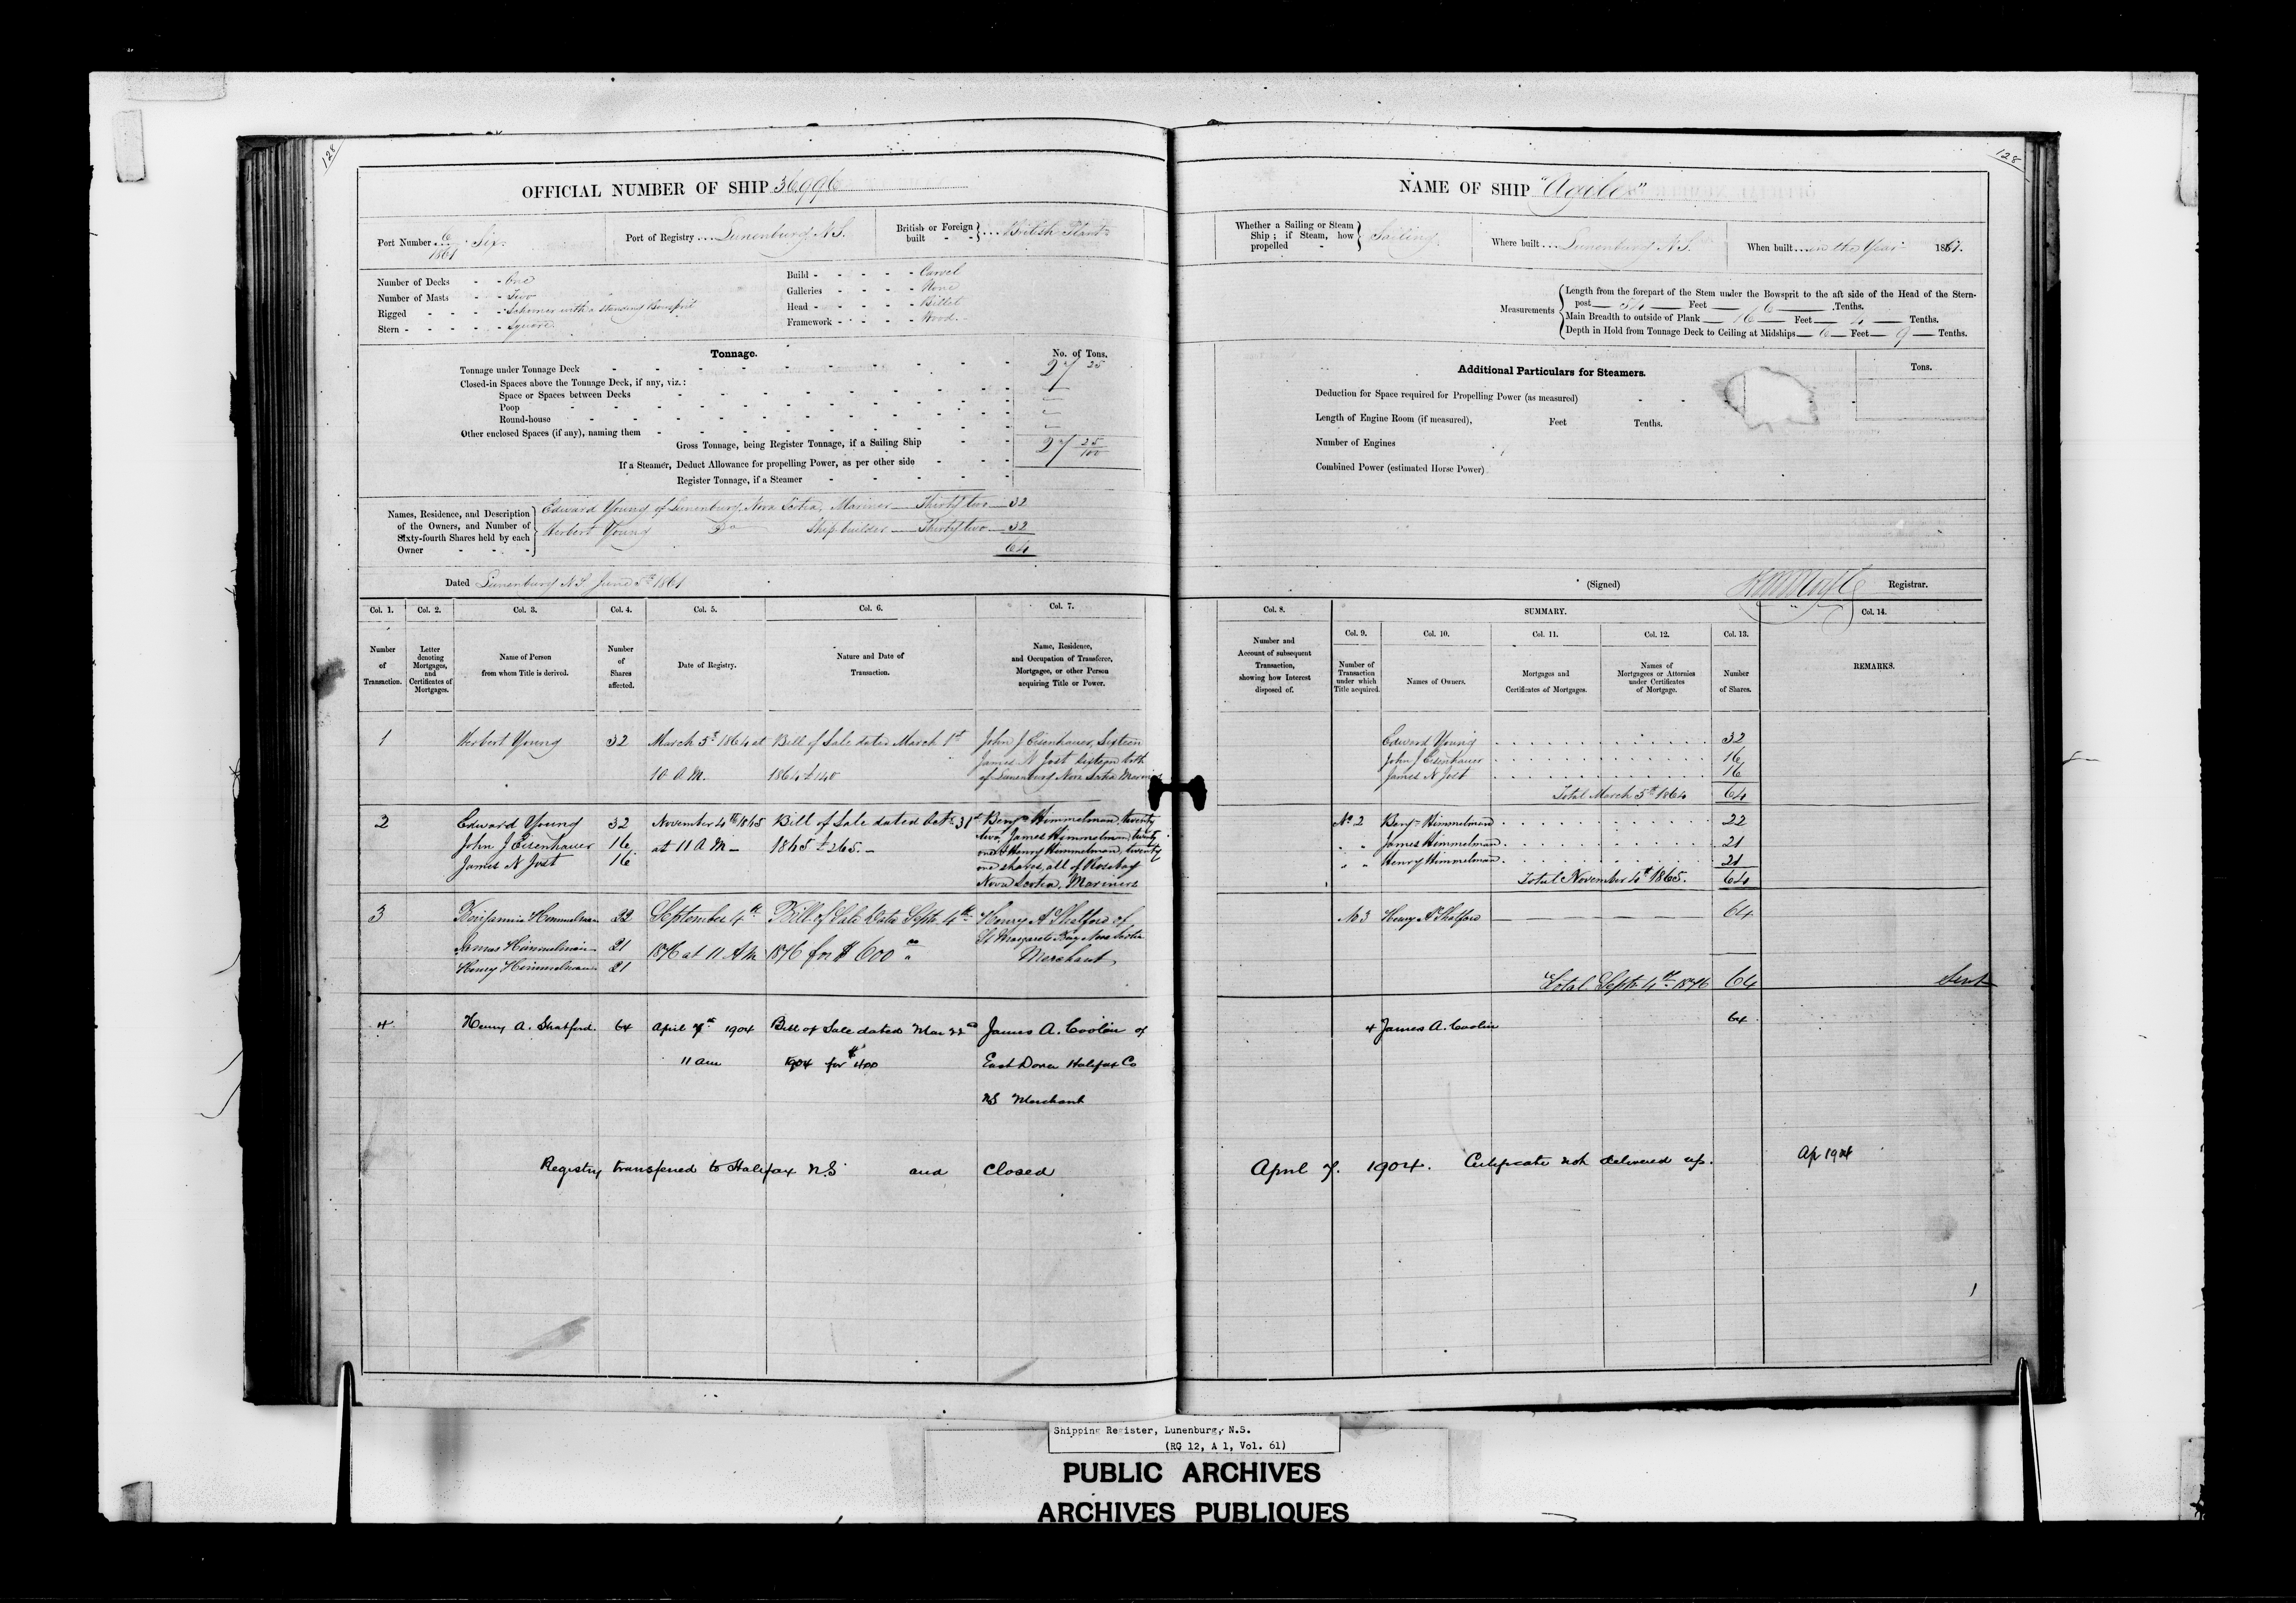 128
OFFICIAL NUMBER OF SHIP 36996
Port Number 6/1861 Six
Port of Registry Lunenburg N.S.
British or Foreign built British Plant
Number of Decks One
Number of Masts Two
Rigged Schooner with a standing Bowsprit
Stern Square
Build Carvel
Galleries None
Head Billet
Framework Wood
Tonnage. No. of Tons.
Tonnage under Tonnage Deck 27 25
Closed-in Spaces above the Tonnage Deck, if any, viz.:
Space or Spaces between Decks
Poop
Round-house
Other enclosed Spaces (if any), naming them
Gross Tonnage, being Register Tonnage, if a Sailing Ship 27 25/100
If a Steamer, Deduct Allowance for propelling Power, as per other side
Register Tonnage, if a Steamer
Names, Residence, and Description of the Owners, and Number of Sixty-fourth Shares held by each Owner
Edward Young of Lunenburg Nova Scotia, Mariner Thirty two 32
Herbert Young Do Ship builder Thirty two 32
64
Dated Lunenburg N.S. June 5th 1861
Col. 1. Col. 2. Col. 3. Col. 4. Col. 5. Col. 6. Col. 7.
Number of Transaction.
Letter denoting Mortgages, and Certificates of Mortgages.
Name of Person from whom Title is derived.
Number of Shares affected.
Date of Registry.
Nature and Date of Transaction.
Name, Residence, and Occupation of Transferee, Mortgagee, or other Person acquiring Title or Power.
1 Herbert Young 32 March 5th 1864 at Bill of Sale dated March 1st John J Eisenhauer, Sixteen
James N Jost sixteen both
10 A.M. 1864 £140 of Lunenburg Nova Scotia
2 Edward Young 32 November 4th 1865 Bill of Sale dated Octr 31st Benjn Himmelman, twenty
John J Eisenhauer 16 at 11 A M 1865 £265. two, James Himmelman, twenty
James N Jost 16 one & Henry Himmelman, twenty
one shares, all of Rosebay
Nova Scotia, Mariners
3 Benjamin Himmelman 22 September 4th Bill of Sale Date Septr 4th Henry A Shatford of
James Himmelman 21 1876 at 11 A M 1876 for $600 00 St Margarets Bay Nova Scotia
Henry Himmelman 21 Merchant
4 Henry A. Shatford. 64 April 7th 1904 Bill of Sale dated Mar 22nd James A. Coolin of
11 am 1904 for $400 East Dover Halifax Co
NS Merchant
Registry transferred to Halifax N.S and Closed
128
NAME OF SHIP "Agiles"
Whether a Sailing or Steam Ship; if Steam, how propelled Sailing
Where built Lunenburg N.S.
When built in the Year 1861.
Measurements
Length from the forepart of the Stem under the Bowsprit to the aft side of the Head of the Stern-
post 54 Feet 6 Tenths.
Main Breadth to outside of Plank 16 Feet 4 Tenths.
Depth in Hold from Tonnage Deck to Ceiling at Midships 6 Feet 9 Tenths.
Additional Particulars for Steamers. Tons.
Deduction for Space required for Propelling Power (as measured)
Length of Engine Room (if measured), Feet Tenths.
Number of Engines
Combined Power (estimated Horse Power)
(Signed) Registrar.
Col. 8. SUMMARY. Col. 14.
Col. 9. Col. 10. Col. 11. Col. 12. Col. 13.
Number and Account of subsequent Transaction, showing how Interest disposed of.
Number of Transaction under which Title acquired.
Names of Owners.
Mortgages and Certificates of Mortgages.
Names of Mortgagees or Attornies under Certificates of Mortgage.
Number of Shares.
REMARKS.
Edward Young 32
John J Eisenhauer 16
James N Jost 16
Total March 5th 1864 64
No 2 Benjn Himmelman 22
" " James Himmelman 21
" " Henry Himmelman 21
Total November 4th 1865. 64
No 3 Henry A Shatford 64
Total Septr 4th 1876 64 Sent
4 James A. Coolin 64
April 7. 1904. Certificate not delivered up. Ap 1904
Shipping Register, Lunenburg, N.S.
(RG 12, A 1, Vol. 61)
PUBLIC ARCHIVES
ARCHIVES PUBLIQUES